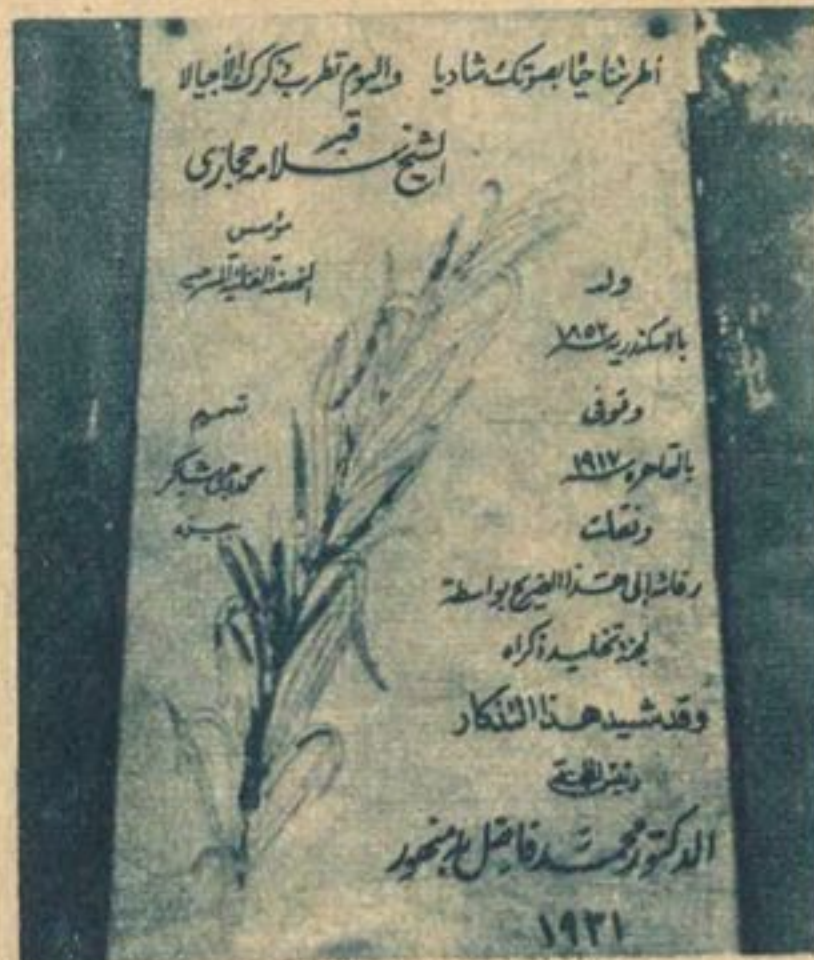 أطربتنا حيا بصوتك شاديا واليوم تطرب ذكرك الأجيالا
قبر
الشيخ سلامه حجازى
مؤسس
النهضة الغنائية المسرحية
ولد
بالاسكندرية سنة ١٨٥٢
وتوفى
بالقاهرة سنة ١٩١٧
ونقلت
رفاته إلى هذا الضريح بواسطة
لجنة تخليد ذكراه
وقد شيد هذا التذكار
رئيس اللجنة
الدكتور محمد فاضل بدمنهور
١٩٣١
تصميم
محمد شاكر